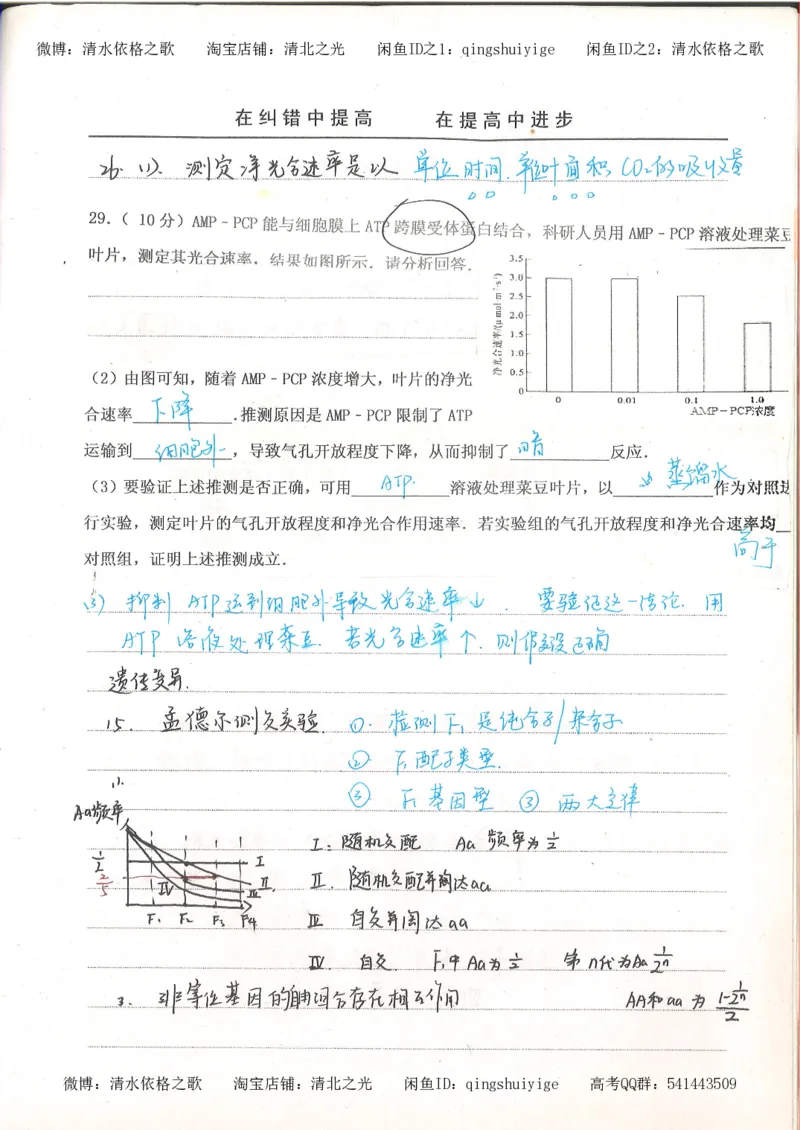 微博：清水依格之歌 淘宝店铺：清北之光 闲鱼ID之1：qingshuiyige 闲鱼ID之2：清水依格之歌
在纠错中提高 在提高中进步
26. (1). 测定净光合速率是以 单位时间.单位叶面积 CO₂的吸收量
29.（ 10 分）AMP－PCP 能与细胞膜上 ATP 跨膜受体蛋白结合，科研人员用 AMP－PCP 溶液处理菜豆
叶片，测定其光合速率．结果如图所示．请分析回答．
净光合速率/(μmol·m⁻²·s⁻¹)
3.5
3.0
2.5
2.0
1.5
1.0
0.5
0
0 0.01 0.1 1.0
AMP－PCP浓度
（2）由图可知，随着 AMP－PCP 浓度增大，叶片的净光
合速率 下降 .推测原因是 AMP－PCP 限制了 ATP
运输到 细胞外 ，导致气孔开放程度下降，从而抑制了 暗 反应．
（3）要验证上述推测是否正确，可用 ATP. 溶液处理菜豆叶片，以 蒸馏水 作为对照进
行实验，测定叶片的气孔开放程度和净光合作用速率．若实验组的气孔开放程度和净光合速率均
高于
对照组，证明上述推测成立．
(3) 抑制 ATP运到细胞外导致光合速率↓ . 要验证这一结论. 用
ATP 溶液处理菜豆. 若光合速率↑. 则假设正确
遗传变异.
15. 孟德尔测交实验. ①. 检测F₁是纯合子/杂合子
② F₁配子类型.
③ F₁基因型 ③ 两大定律
1).
Aa频率
1/2
2/5
I
II
III
IV
F₁ F₂ F₃ F4
I: 随机交配 Aa 频率为1/2
II. 随机交配并淘汰aa
III 自交并淘汰aa
IV. 自交. F₁中Aa为1/2 第n代为Aa 1/2ⁿ
3. 非等位基因的自由组合存在相互作用 AA和aa 为 (1-1/2ⁿ)/2
微博：清水依格之歌 淘宝店铺：清北之光 闲鱼ID：qingshuiyige 高考QQ群：541443509